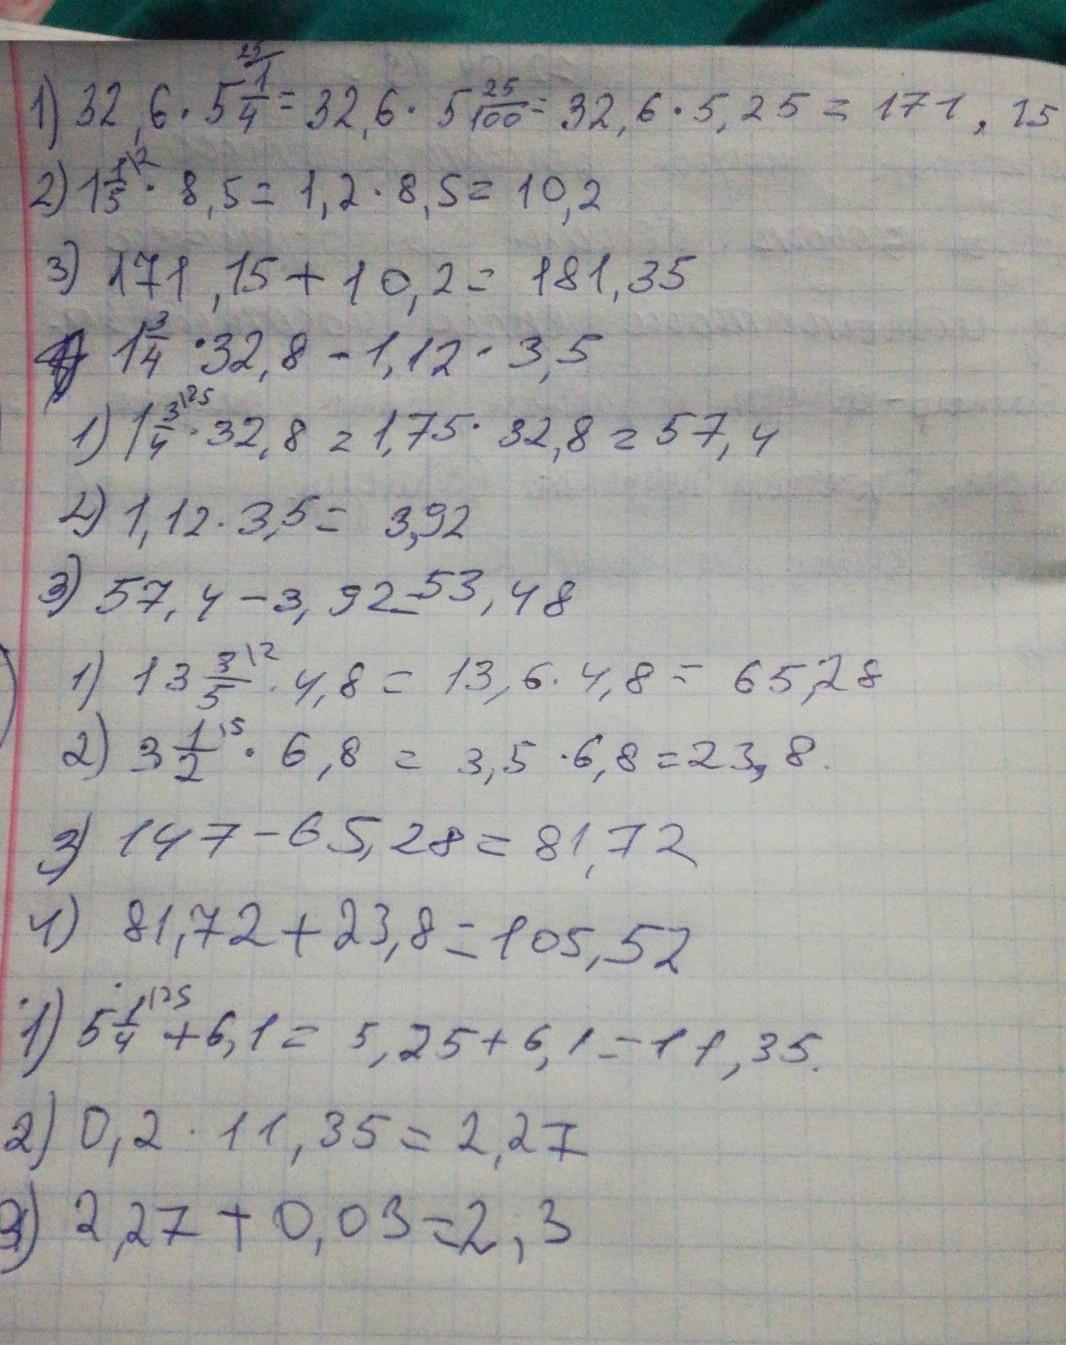 1) 32,6 · 5 1/4 \25 = 32,6 · 5 25/100 = 32,6 · 5,25 = 171,15
2) 1 1/5 \2 · 8,5 = 1,2 · 8,5 = 10,2
3) 171,15 + 10,2 = 181,35
1 3/4 · 32,8 - 1,12 · 3,5
1) 1 3/4 \25 · 32,8 = 1,75 · 32,8 = 57,4
2) 1,12 · 3,5 = 3,92
3) 57,4 - 3,92 = 53,48
1) 13 3/5 \2 · 4,8 = 13,6 · 4,8 = 65,28
2) 3 1/2 \5 · 6,8 = 3,5 · 6,8 = 23,8.
3) 147 - 65,28 = 81,72
4) 81,72 + 23,8 = 105,52
1) 5 1/4 \25 + 6,1 = 5,25 + 6,1 = 11,35.
2) 0,2 · 11,35 = 2,27
3) 2,27 + 0,03 = 2,3